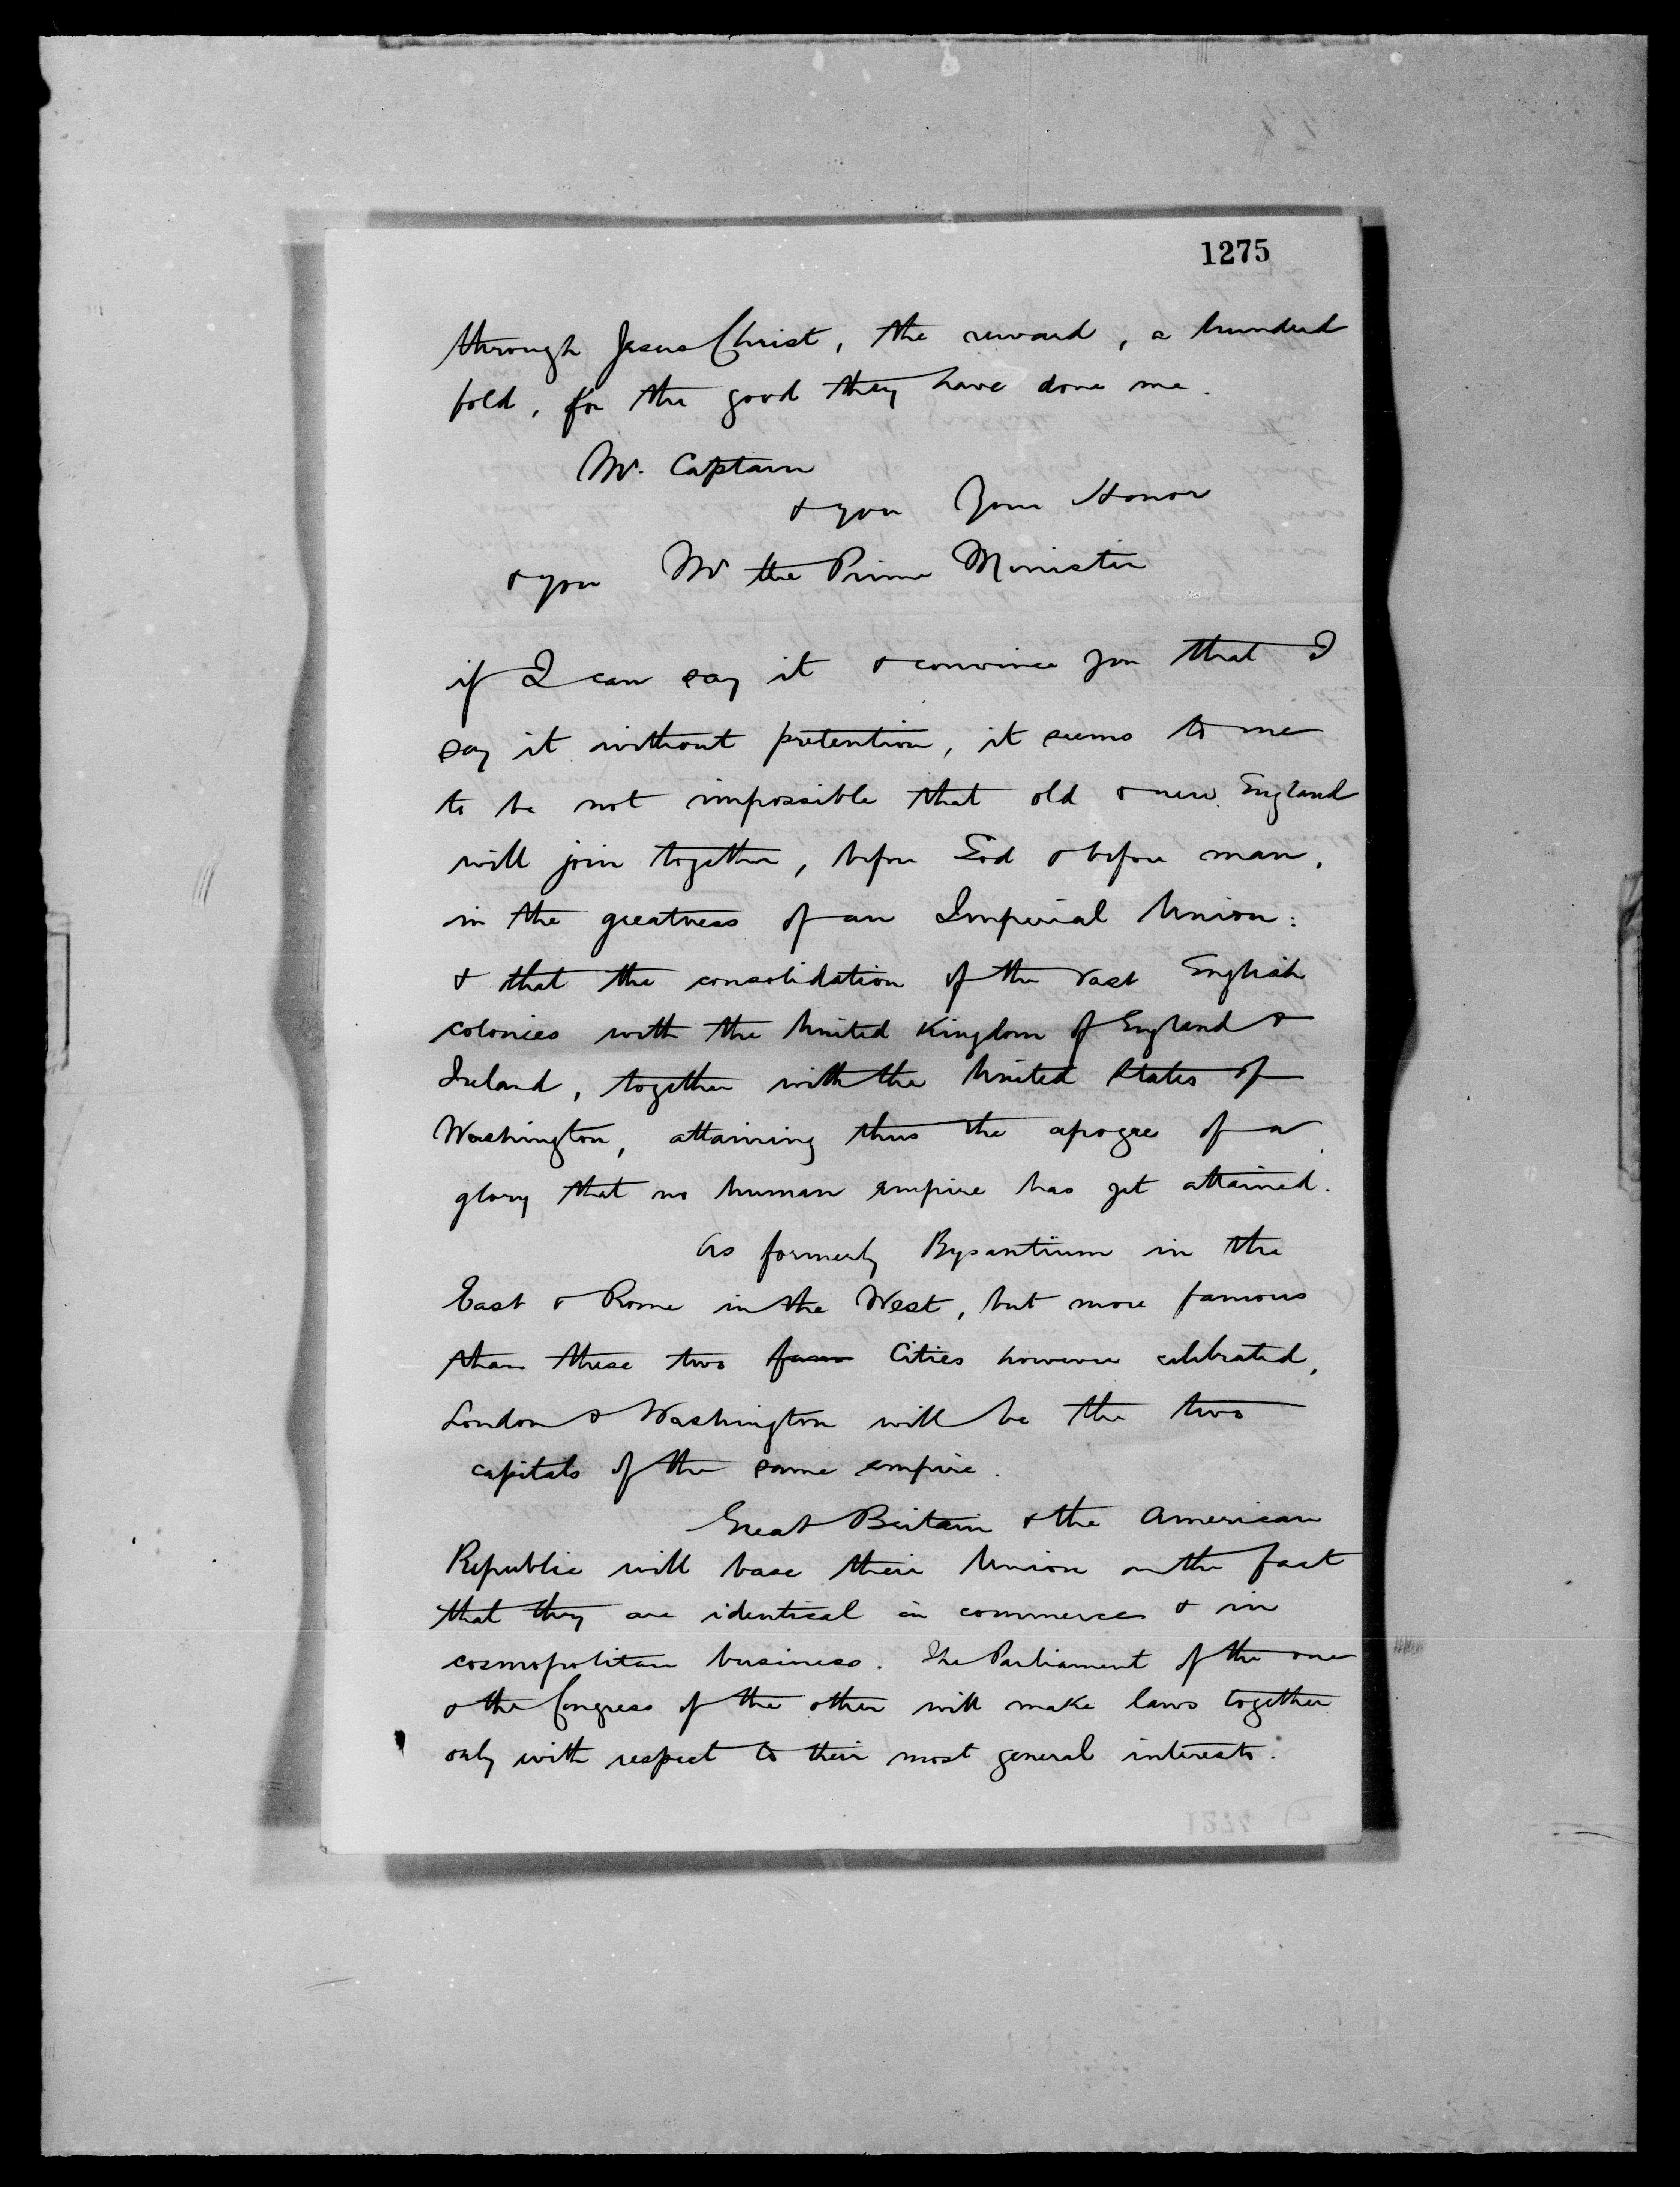 1275
through Jesus Christ, the reward, a hundred
fold, for the good they have done me.
Mr. Captain
& you Your Honor
& you Mr the Prime Minister
if I can say it & convince you that I
say it without pretention, it seems to me
to be not impossible that old & new England
will join together, before God & before man,
in the greatness of an Imperial Union:
& that the consolidation of the vast English
colonies with the United Kingdom of England &
Ireland, together with the United States of
Washington, attaining thus the apogee of a
glory that no human empire has yet attained.
As formerly Bysantium in the
East & Rome in the West, but more famous
than these two fam Cities however celebrated,
London & Washington will be the two
capitals of the same empire.
Great Britain & the American
Republic will base their Union on the fact
that they are identical in commerce & in
cosmopolitan business. The Parliament of the one
& the Congress of the other will make laws together
only with respect to their most general interests.
1274